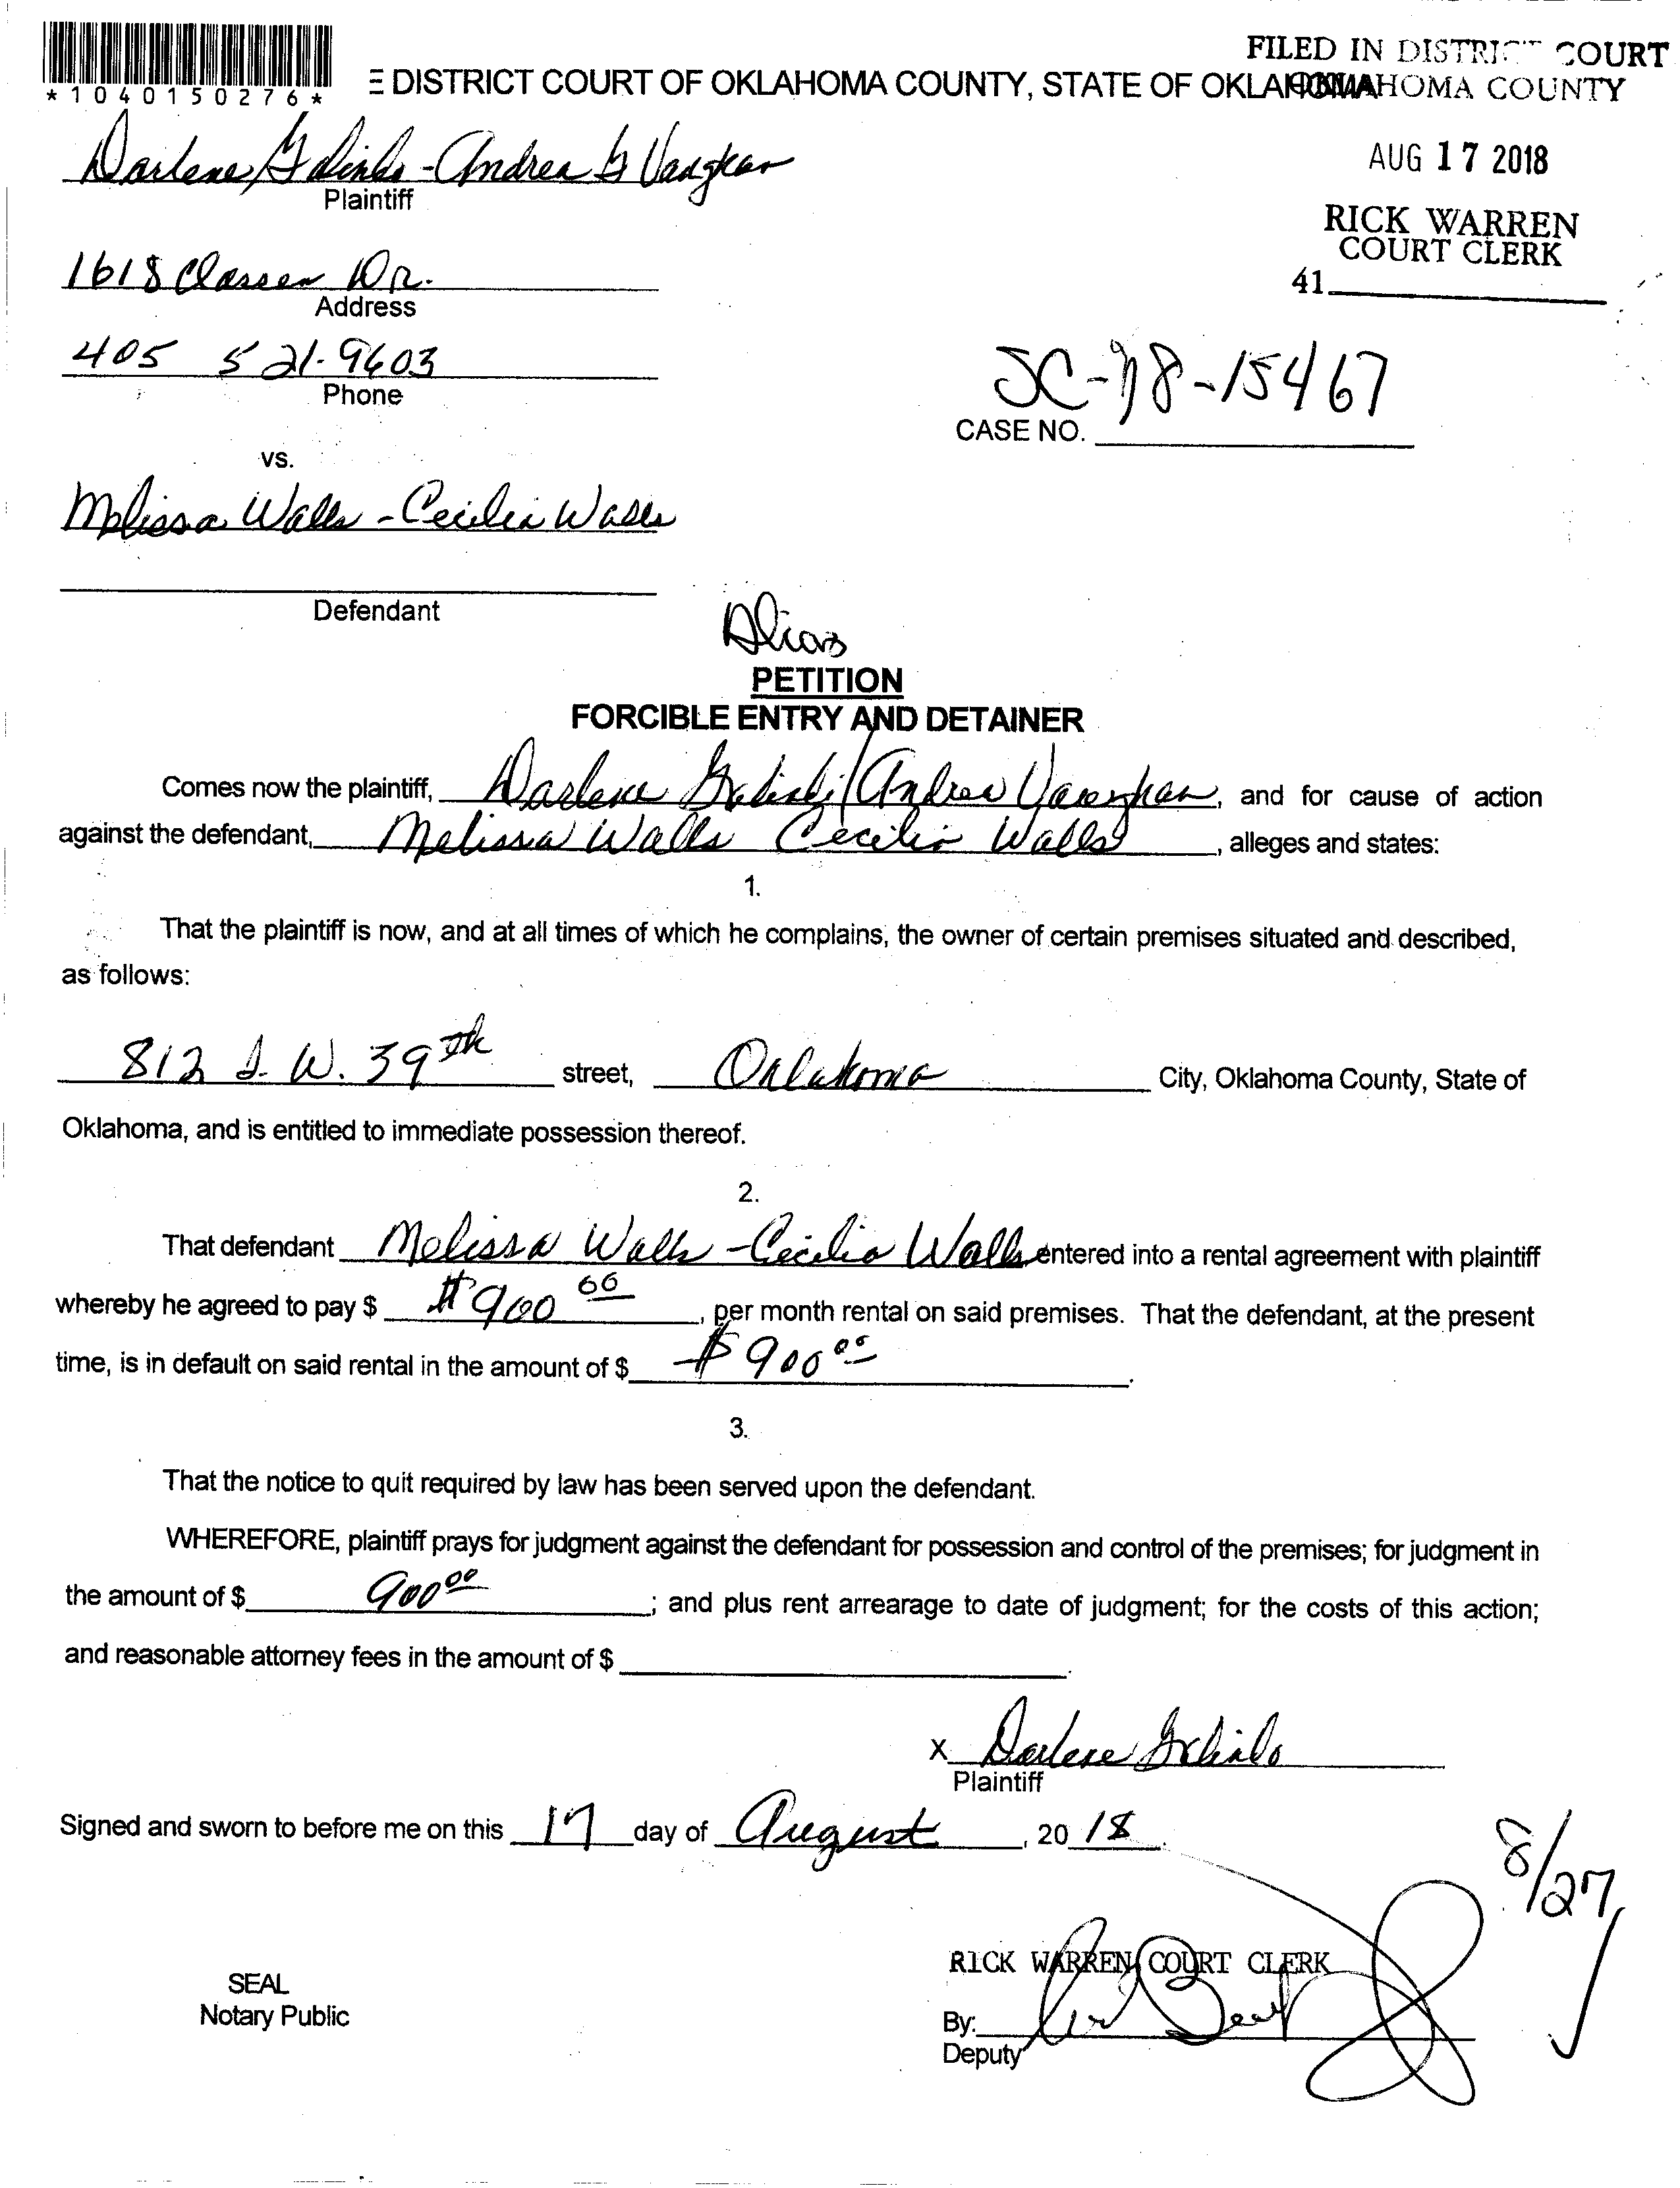 *1040150276*
E DISTRICT COURT OF OKLAHOMA COUNTY, STATE OF OKLAHOMA
FILED IN DISTRICT COURT
OKLAHOMA COUNTY
AUG 17 2018
RICK WARREN
COURT CLERK
41
Darlene Galindo - Andrea G Vaughan
Plaintiff
1618 Classen Dr.
Address
405 521-9603
Phone
SC-18-15467
CASE NO.
vs.
Melissa Walls - Cecilia Walls
Defendant
Alias
PETITION
FORCIBLE ENTRY AND DETAINER
Comes now the plaintiff, Darlene Galindo/Andrea Vaughan, and for cause of action
against the defendant, Melissa Walls Cecilia Walls, alleges and states:
1.
That the plaintiff is now, and at all times of which he complains, the owner of certain premises situated and described,
as follows:
812 S. W. 39th street, Oklahoma City, Oklahoma County, State of
Oklahoma, and is entitled to immediate possession thereof.
2.
That defendant Melissa Walls - Cecilia Walls entered into a rental agreement with plaintiff
whereby he agreed to pay $ $900 00, per month rental on said premises. That the defendant, at the present
time, is in default on said rental in the amount of $ $900 00.
3.
That the notice to quit required by law has been served upon the defendant.
WHEREFORE, plaintiff prays for judgment against the defendant for possession and control of the premises; for judgment in
the amount of $ 900 00; and plus rent arrearage to date of judgment; for the costs of this action;
and reasonable attorney fees in the amount of $
X Darlene Galindo
Plaintiff
Signed and sworn to before me on this 17 day of August, 2018.
8/27
RICK WARREN COURT CLERK
SEAL
Notary Public
By:
Deputy